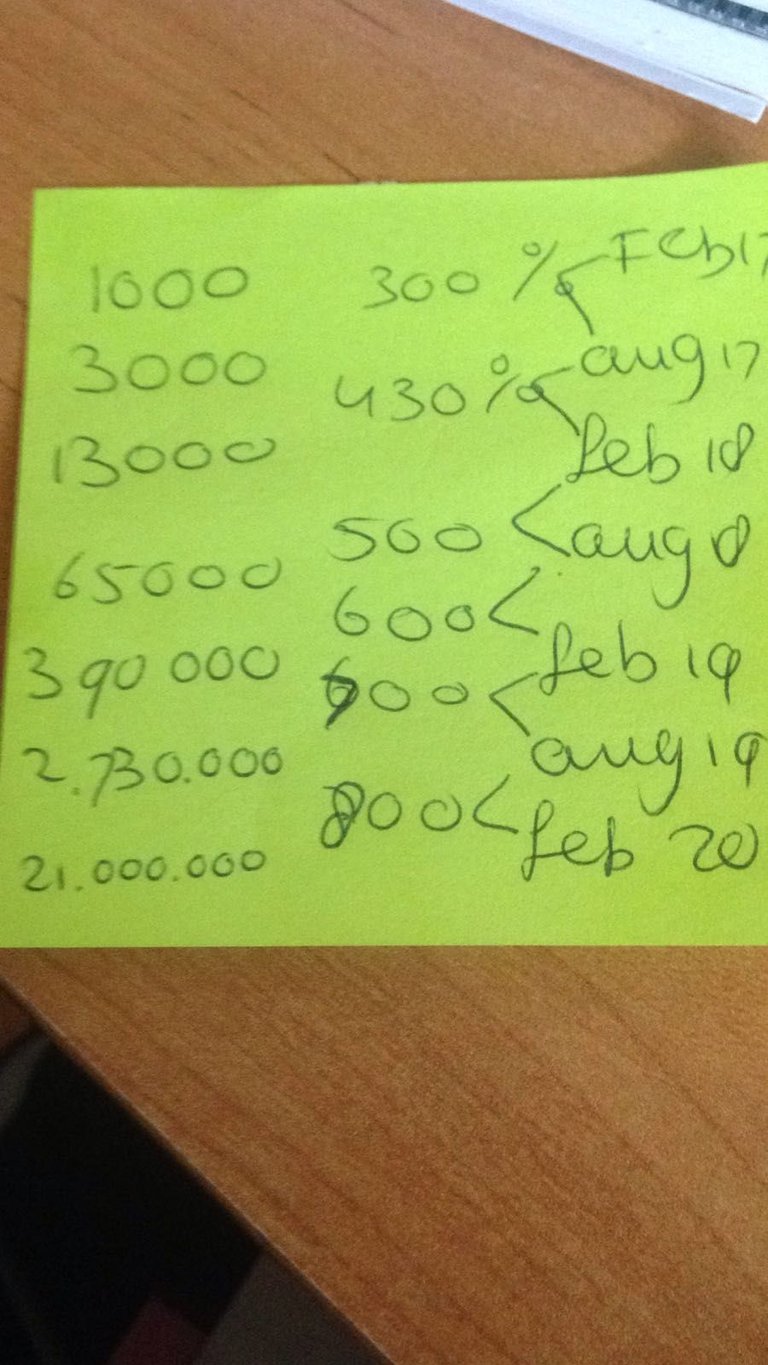 1000 300 % Feb 17
3000 430 % aug 17
13000 feb 18
65000 500 aug 18
390 000 600 feb 19
2.730.000 700 aug 19
21.000.000 800 feb 20